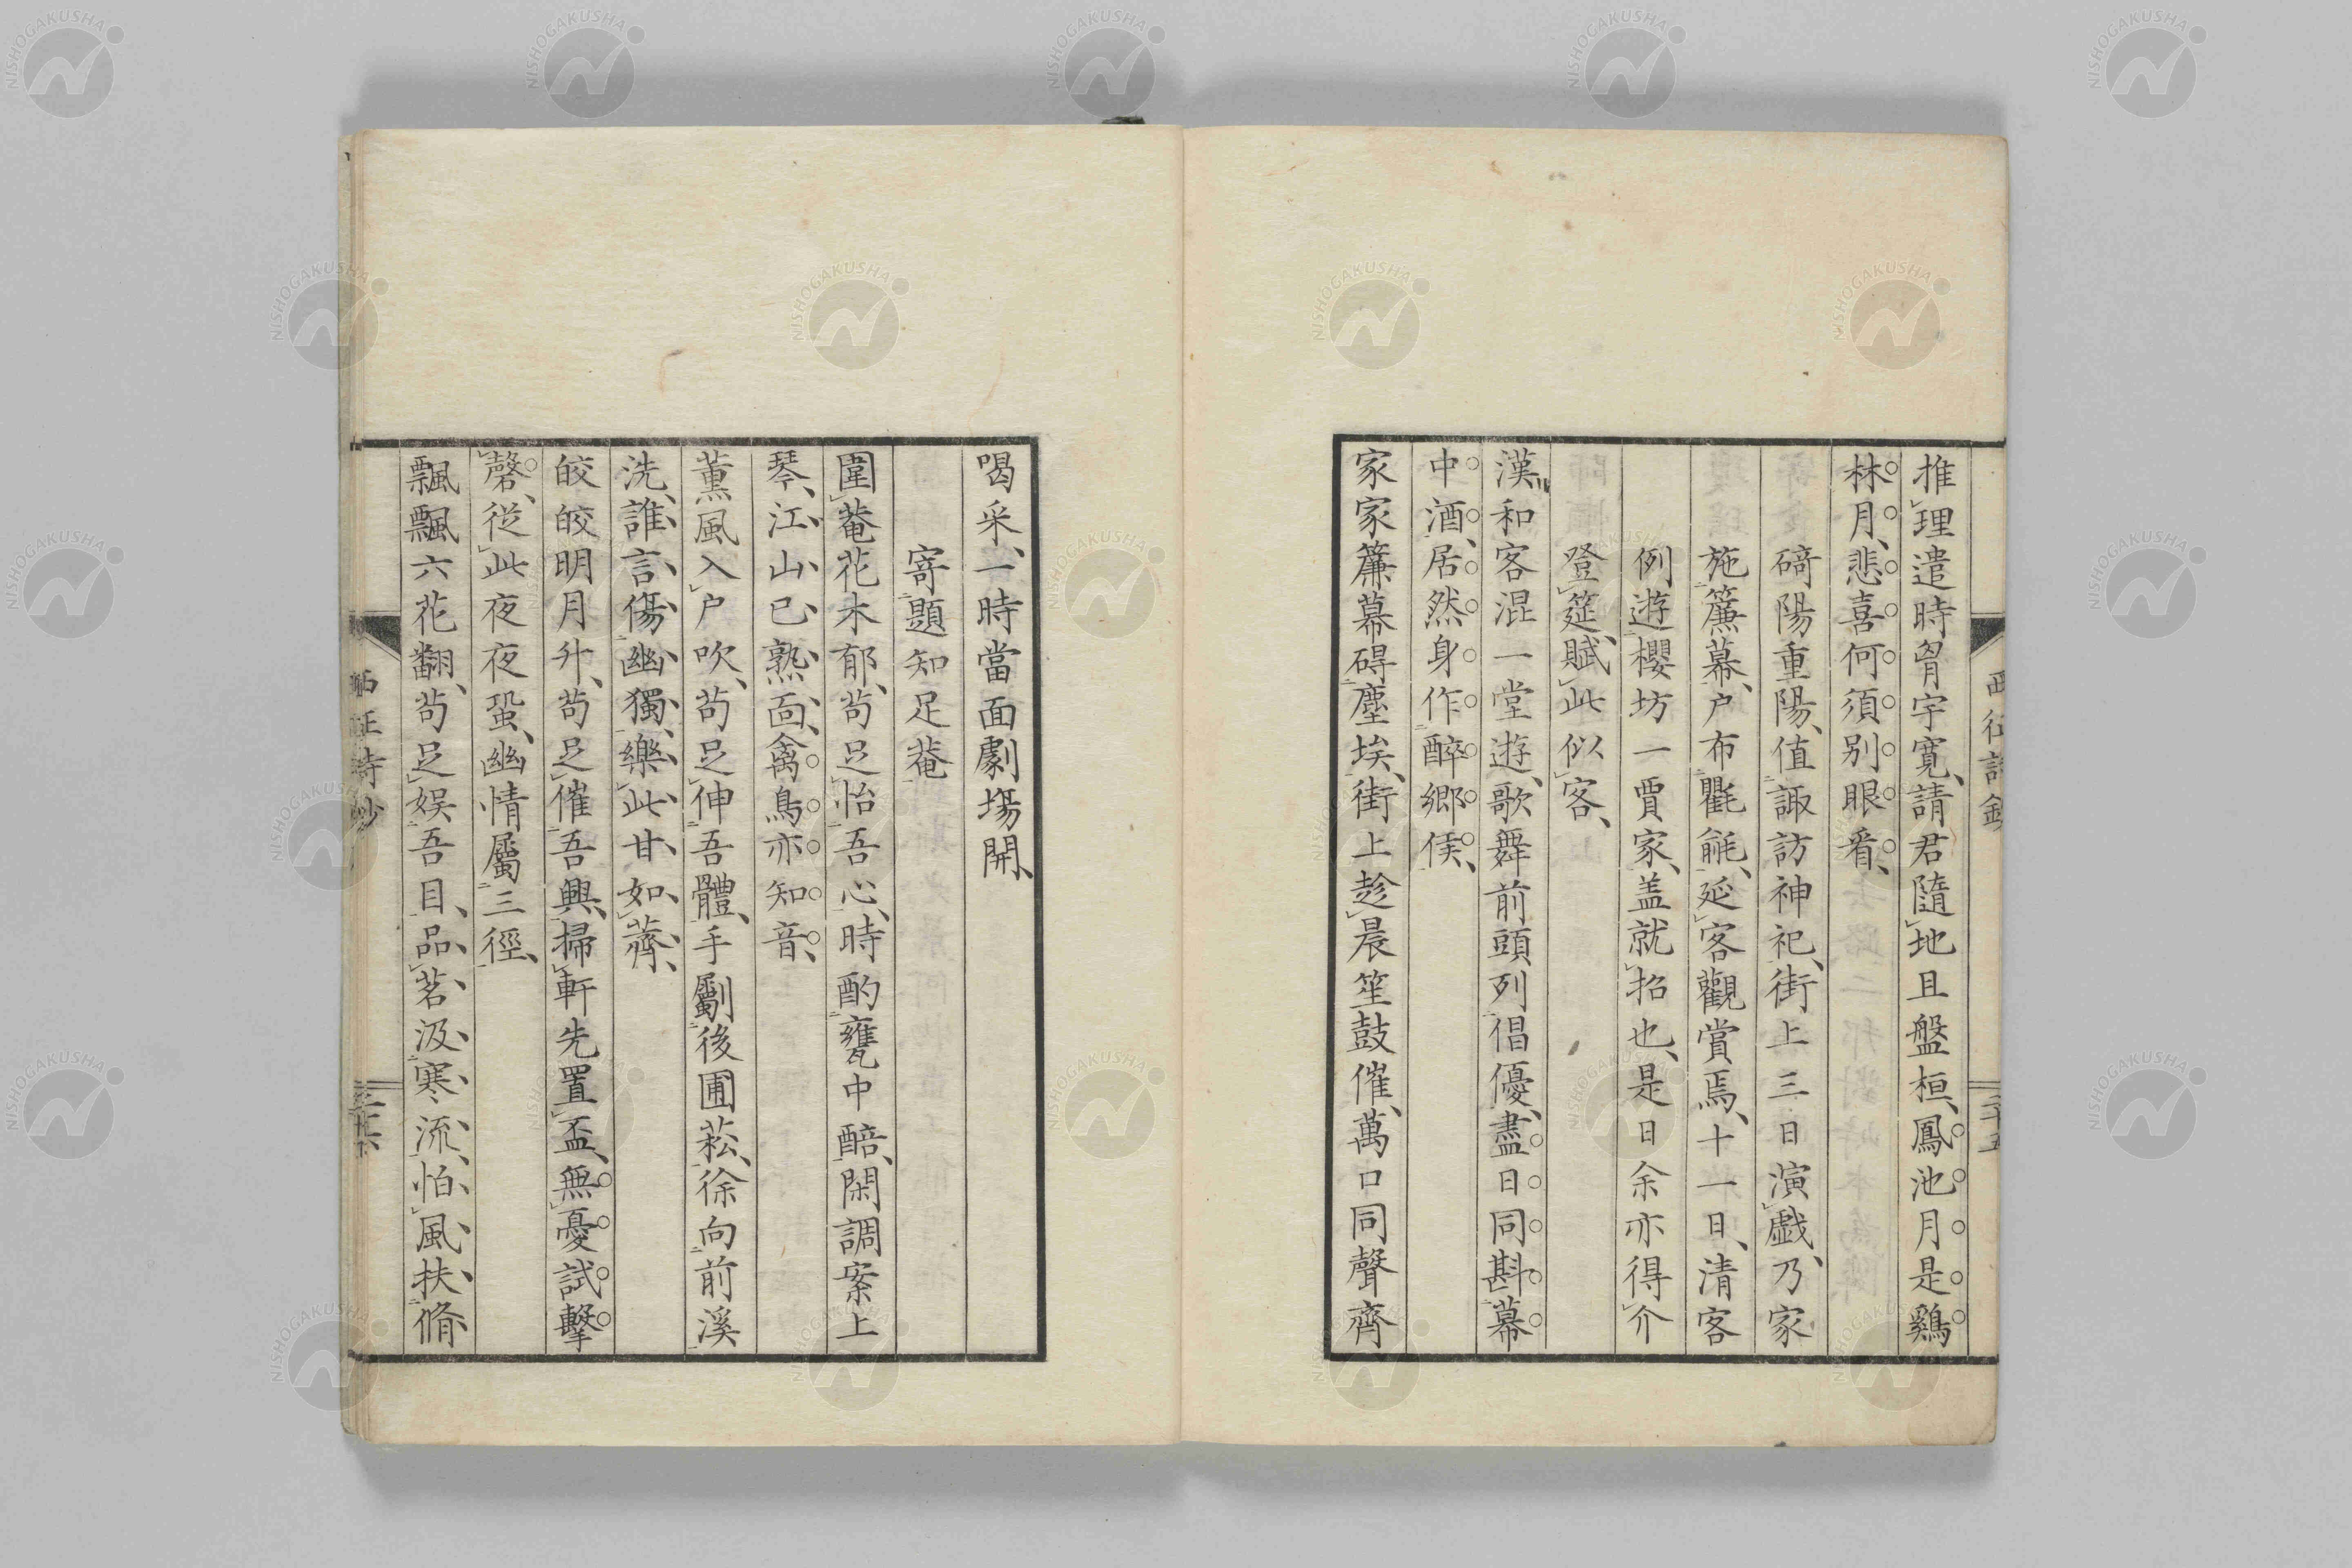 推理遣時胷宇寛、請君隨地且盤桓、鳳池月是鷄
林月、悲喜何須別眼看、
碕陽重陽、值諏訪神祀、街上三日演戯、乃家
施簾幕、戸布氍毹、延客觀賞焉、十一日、清客
例遊櫻坊一賈家、盖就招也、是日余亦得介
登筵、賦此似客、
漢和客混一堂遊、歌舞前頭列倡優、盡日同斟幕
中酒、居然身作醉郷侯、
家家簾幕碍塵埃、街上趁晨笙鼓催、萬口同聲齊
西征詩鈔
三十五
喝采、一時當面劇場開、
寄題知足菴
圍菴花木郁、苟足怡吾心、時酌甕中醅、閑調案上
琴、江山已熟面、禽鳥亦知音、
薫風入戸吹、苟足伸吾體、手劚後圃菘、徐向前溪
洗、誰言傷幽獨、樂此甘如薺、
皎皎明月升、苟足催吾興、掃軒先置盃、無憂試擊
磬、從此夜夜蛩、幽情屬三徑、
飄飄六花翻、苟足娯吾目、品茗汲寒流、怕風扶脩
西征詩鈔
三十六
NISHOGAKUSHA